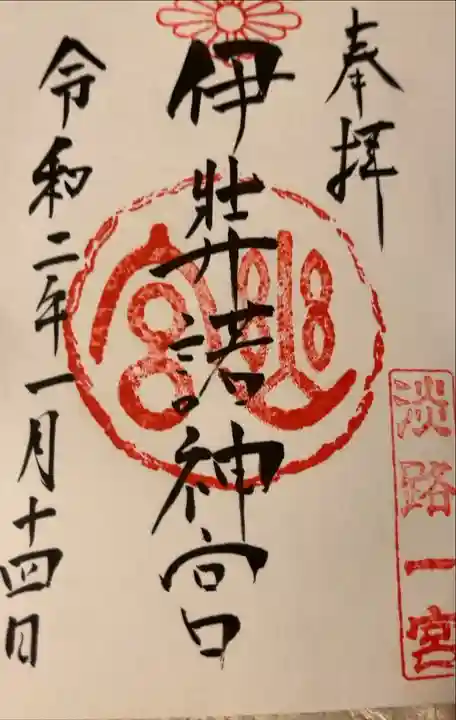 奉拝
淡路一宮
伊弉諾神宮
令和二年一月十四日